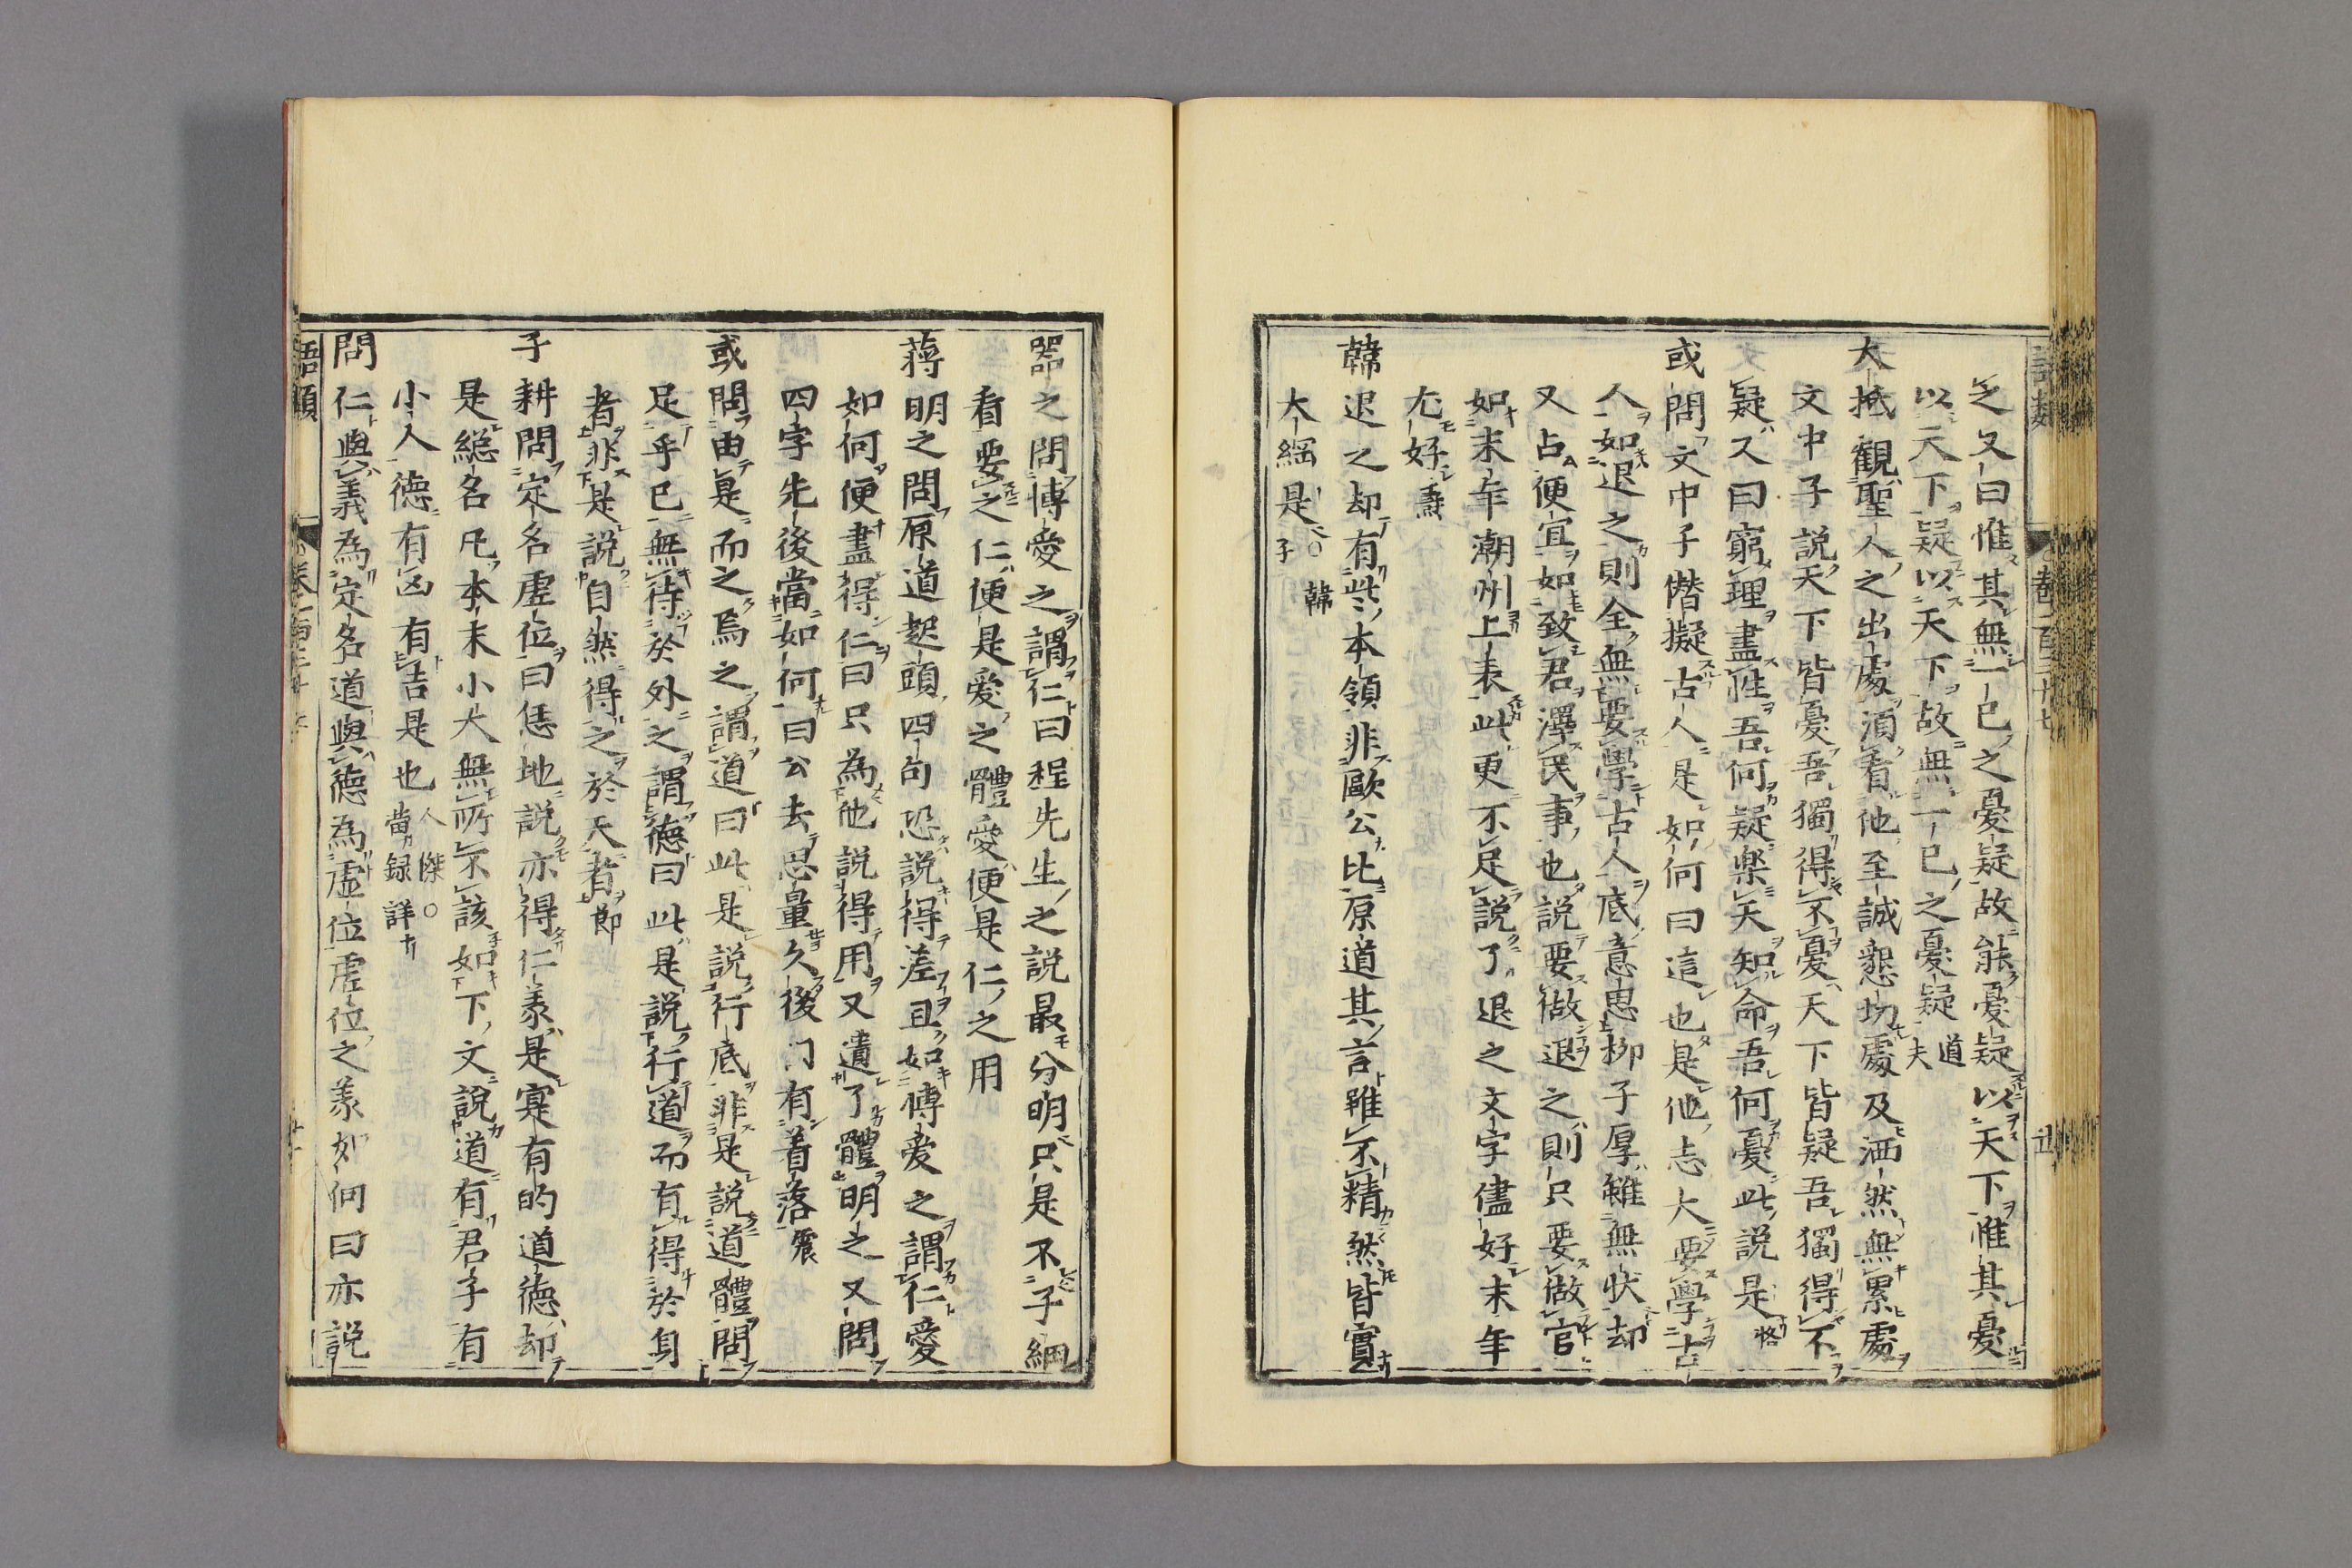 乏又曰惟其無一己之憂疑故能憂疑以天下惟其憂
以天下疑以天下故無一己之憂疑道夫
大抵觀聖人之出處須看他至誠懇切處及洒然無累處
文中子說天下皆憂吾獨得不憂天下皆疑吾獨得不
疑又曰窮理盡性吾何疑樂天知命吾何憂此說是恪
或問文中子僭擬古人是如何曰這也是他志大要學古
人如退之則全無要學古人底意思柳子厚雖無狀却
又占便宜如致君澤民事也說要做退之則只要做官
如末年潮州上表此更不足說了退之文字儘好末年
尤好燾
韓退之却有些本領非歐公比原道其言雖不精然皆實
大綱是韓子
器之問博愛之謂仁曰程先生之說最分明只是不子細
看要之仁便是愛之體愛便是仁之用
蔣明之問原道起頭四句恐說得差且如博愛之謂仁愛
如何便盡得仁曰只為他說得用又遺了體明之又問
四字先後當如何曰公去思量久後門有着落震
或問由是而之焉之謂道曰此是說行底非是說道體問
足乎已無待於外之謂德曰此是說行道而有得於身
者非是說自然得之於天者節
子耕問定名虛位曰恁地說亦得仁義是寔有的道德却
是緫名凡本末小大無所不該如下文說道有君子有
小人德有凶有吉是也人傑○當録詳
問仁與義為定名道與德為虛位虛位之義如何曰亦說
語類